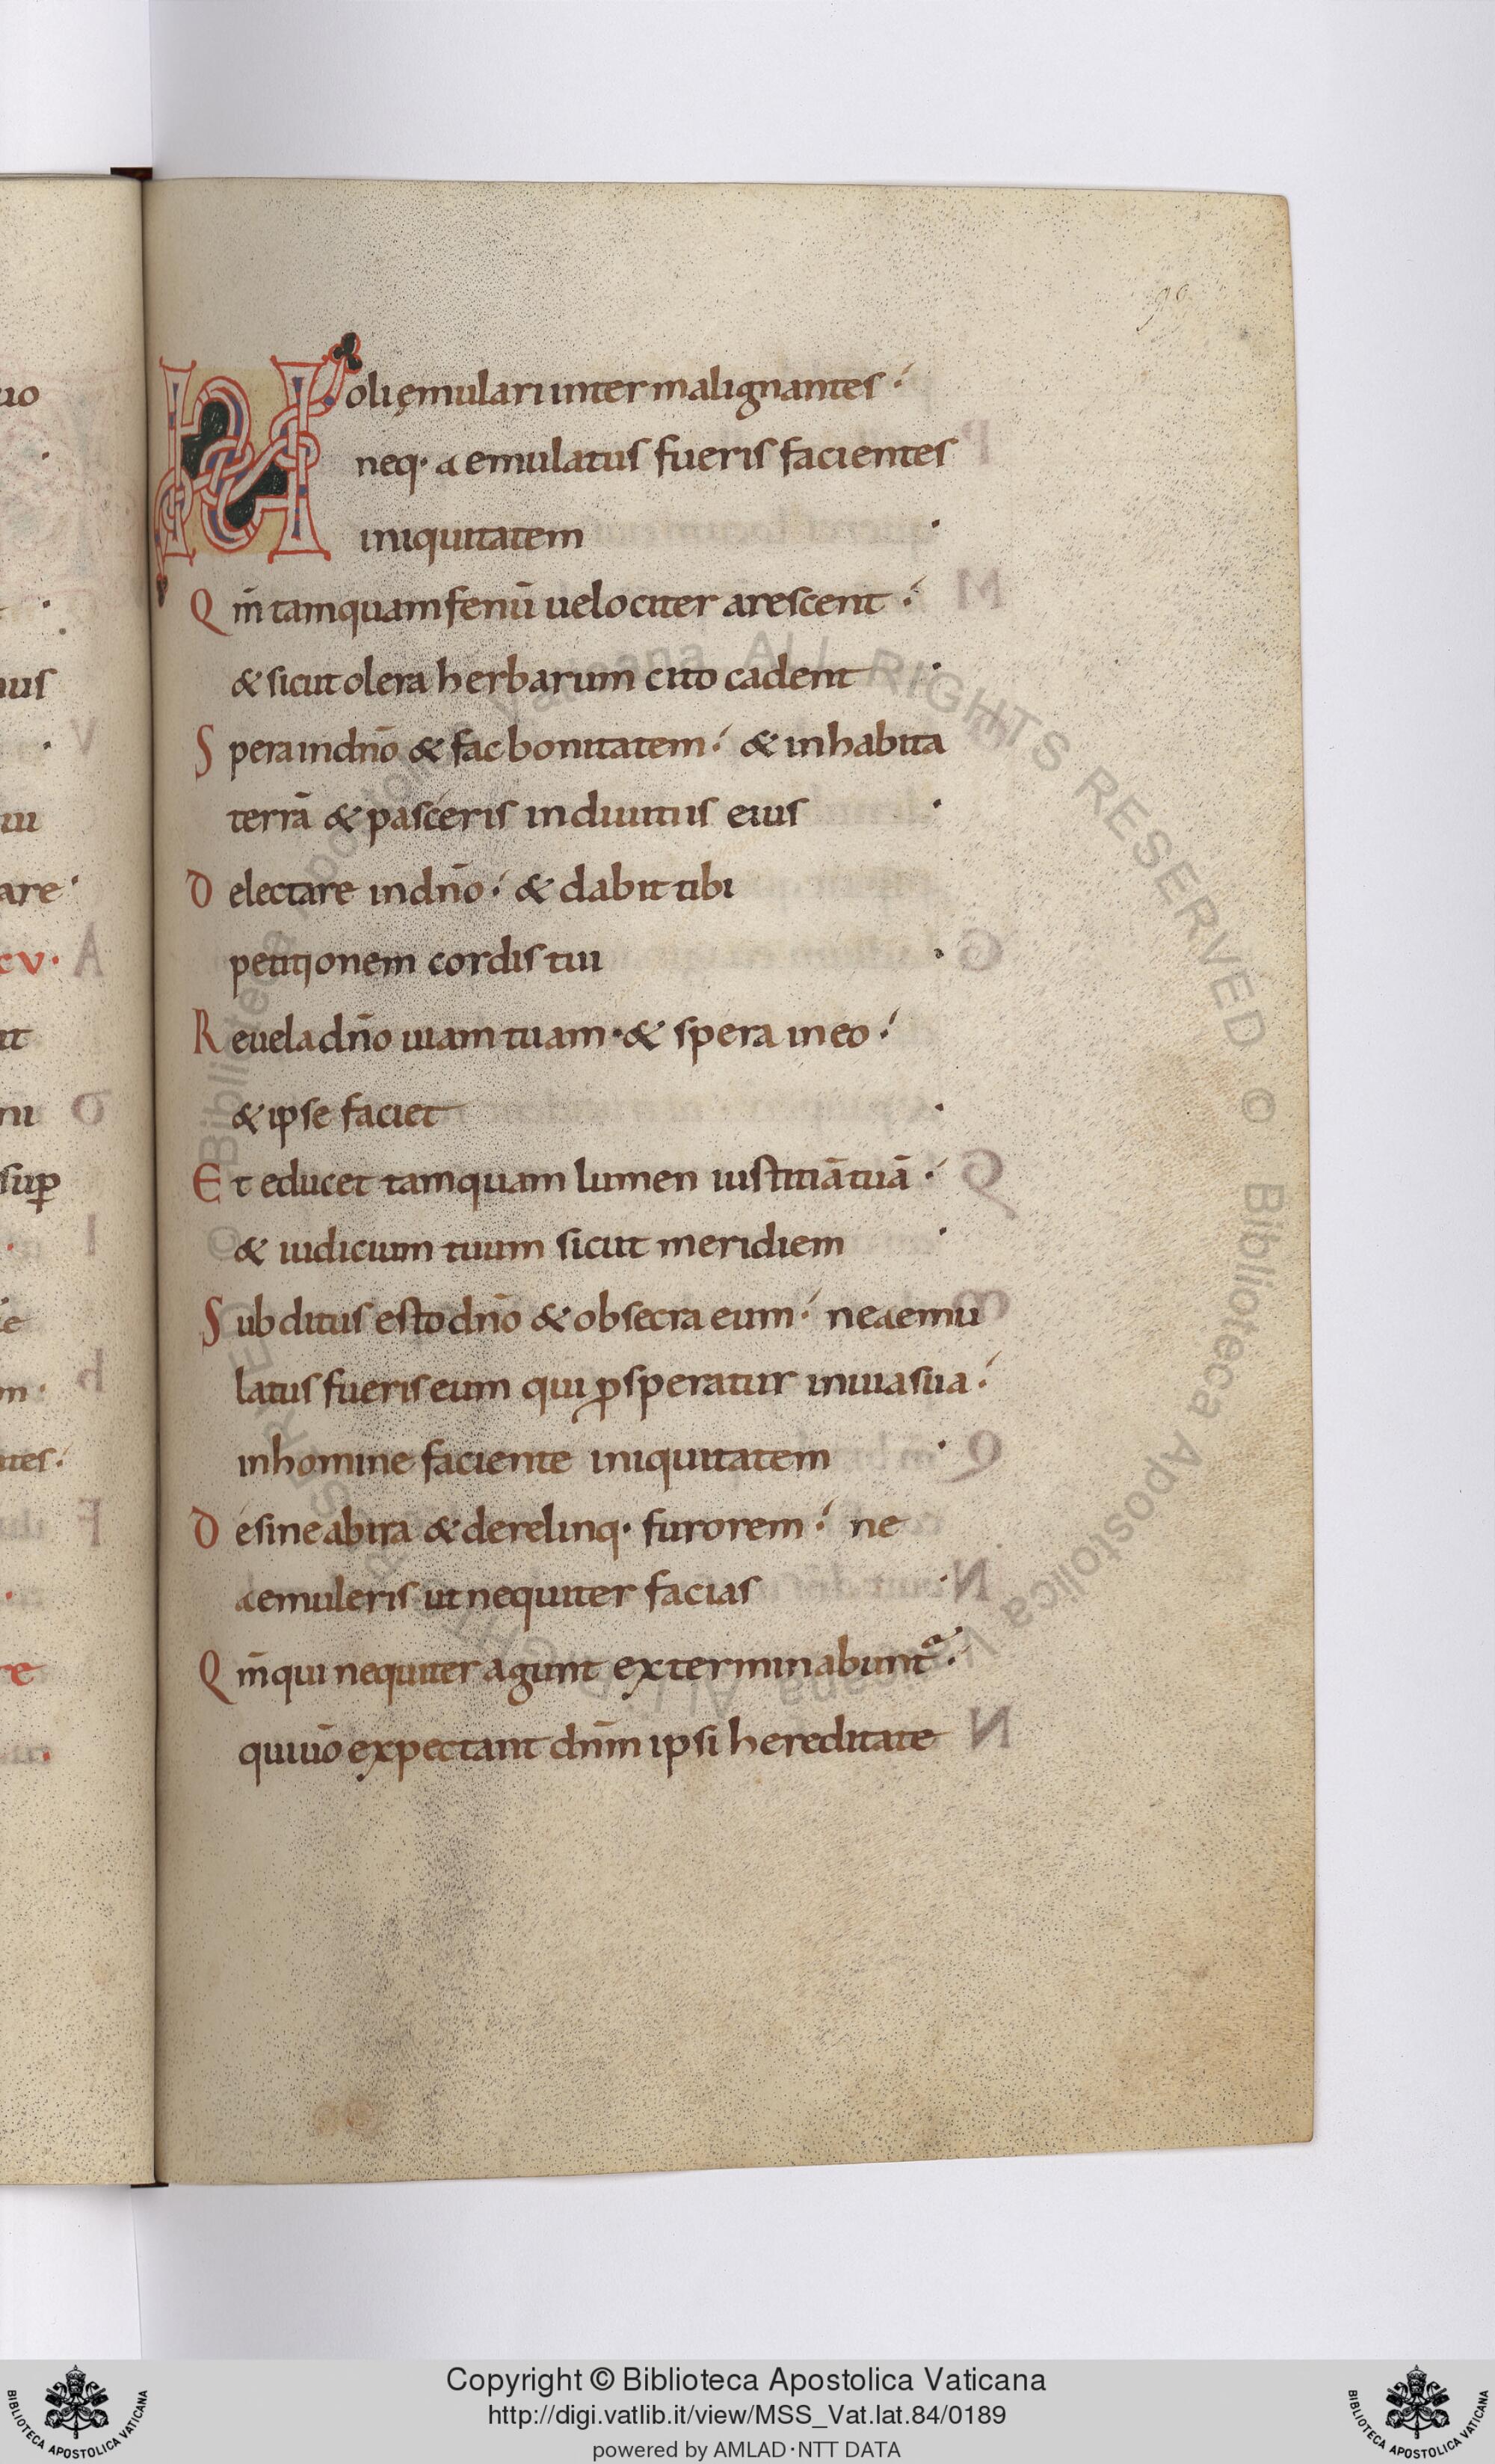 90
Noli ęmulari inter malignantes
neq· aemulatus fueris facientes
iniquitatem
Qm̄ tamquam fenū uelociter arescent
& sicut olera herbarum cito cadent
Spera in dn̄o & fac bonitatem & inhabita
terrā & pasceris in diuitiis eius
Delectare in dn̄o & dabit tibi
petitionem cordis tui
Reuela dn̄o uiam tuam · & spera in eo
& ipse faciet
Et educet tamquam lumen iustitiā tuā
& iudicium tuum sicut meridiem
Subditus esto dn̄o & obsecra eum ne aemu
latus fueris eum qui ꝓsperatur in uia sua
in homine faciente iniquitatem
Desine ab ira & derelinq· furorem ne
aemuleris ut nequiter facias
Qm̄ qui nequiter agunt exterminabunt᷑
qui uō expectant dn̄m ipsi hereditate
© Biblioteca Apostolica Vaticana ALL RIGHTS RESERVED © Biblioteca Apostolica Vaticana ALL RIGHTS RESERVED
Copyright © Biblioteca Apostolica Vaticana
http://digi.vatlib.it/view/MSS_Vat.lat.84/0189
powered by AMLAD·NTT DATA
BIBLIOTECA APOSTOLICA VATICANA
BIBLIOTECA APOSTOLICA VATICANA